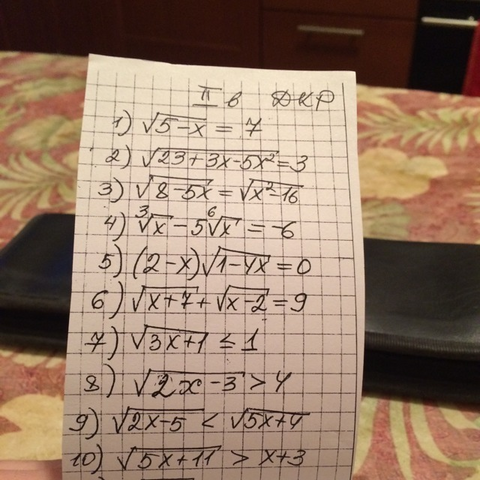 II в ДКР
1) √5-x = 7
2) √23+3x-5x² = 3
3) √8-5x = √x²-16
4) ³√x - 5⁶√x = -6
5) (2-x)√1-4x = 0
6) √x+7 + √x-2 = 9
7) √3x+1 ≤ 1
8) √2x-3 > 4
9) √2x-5 < √5x+4
10) √5x+11 > x+3